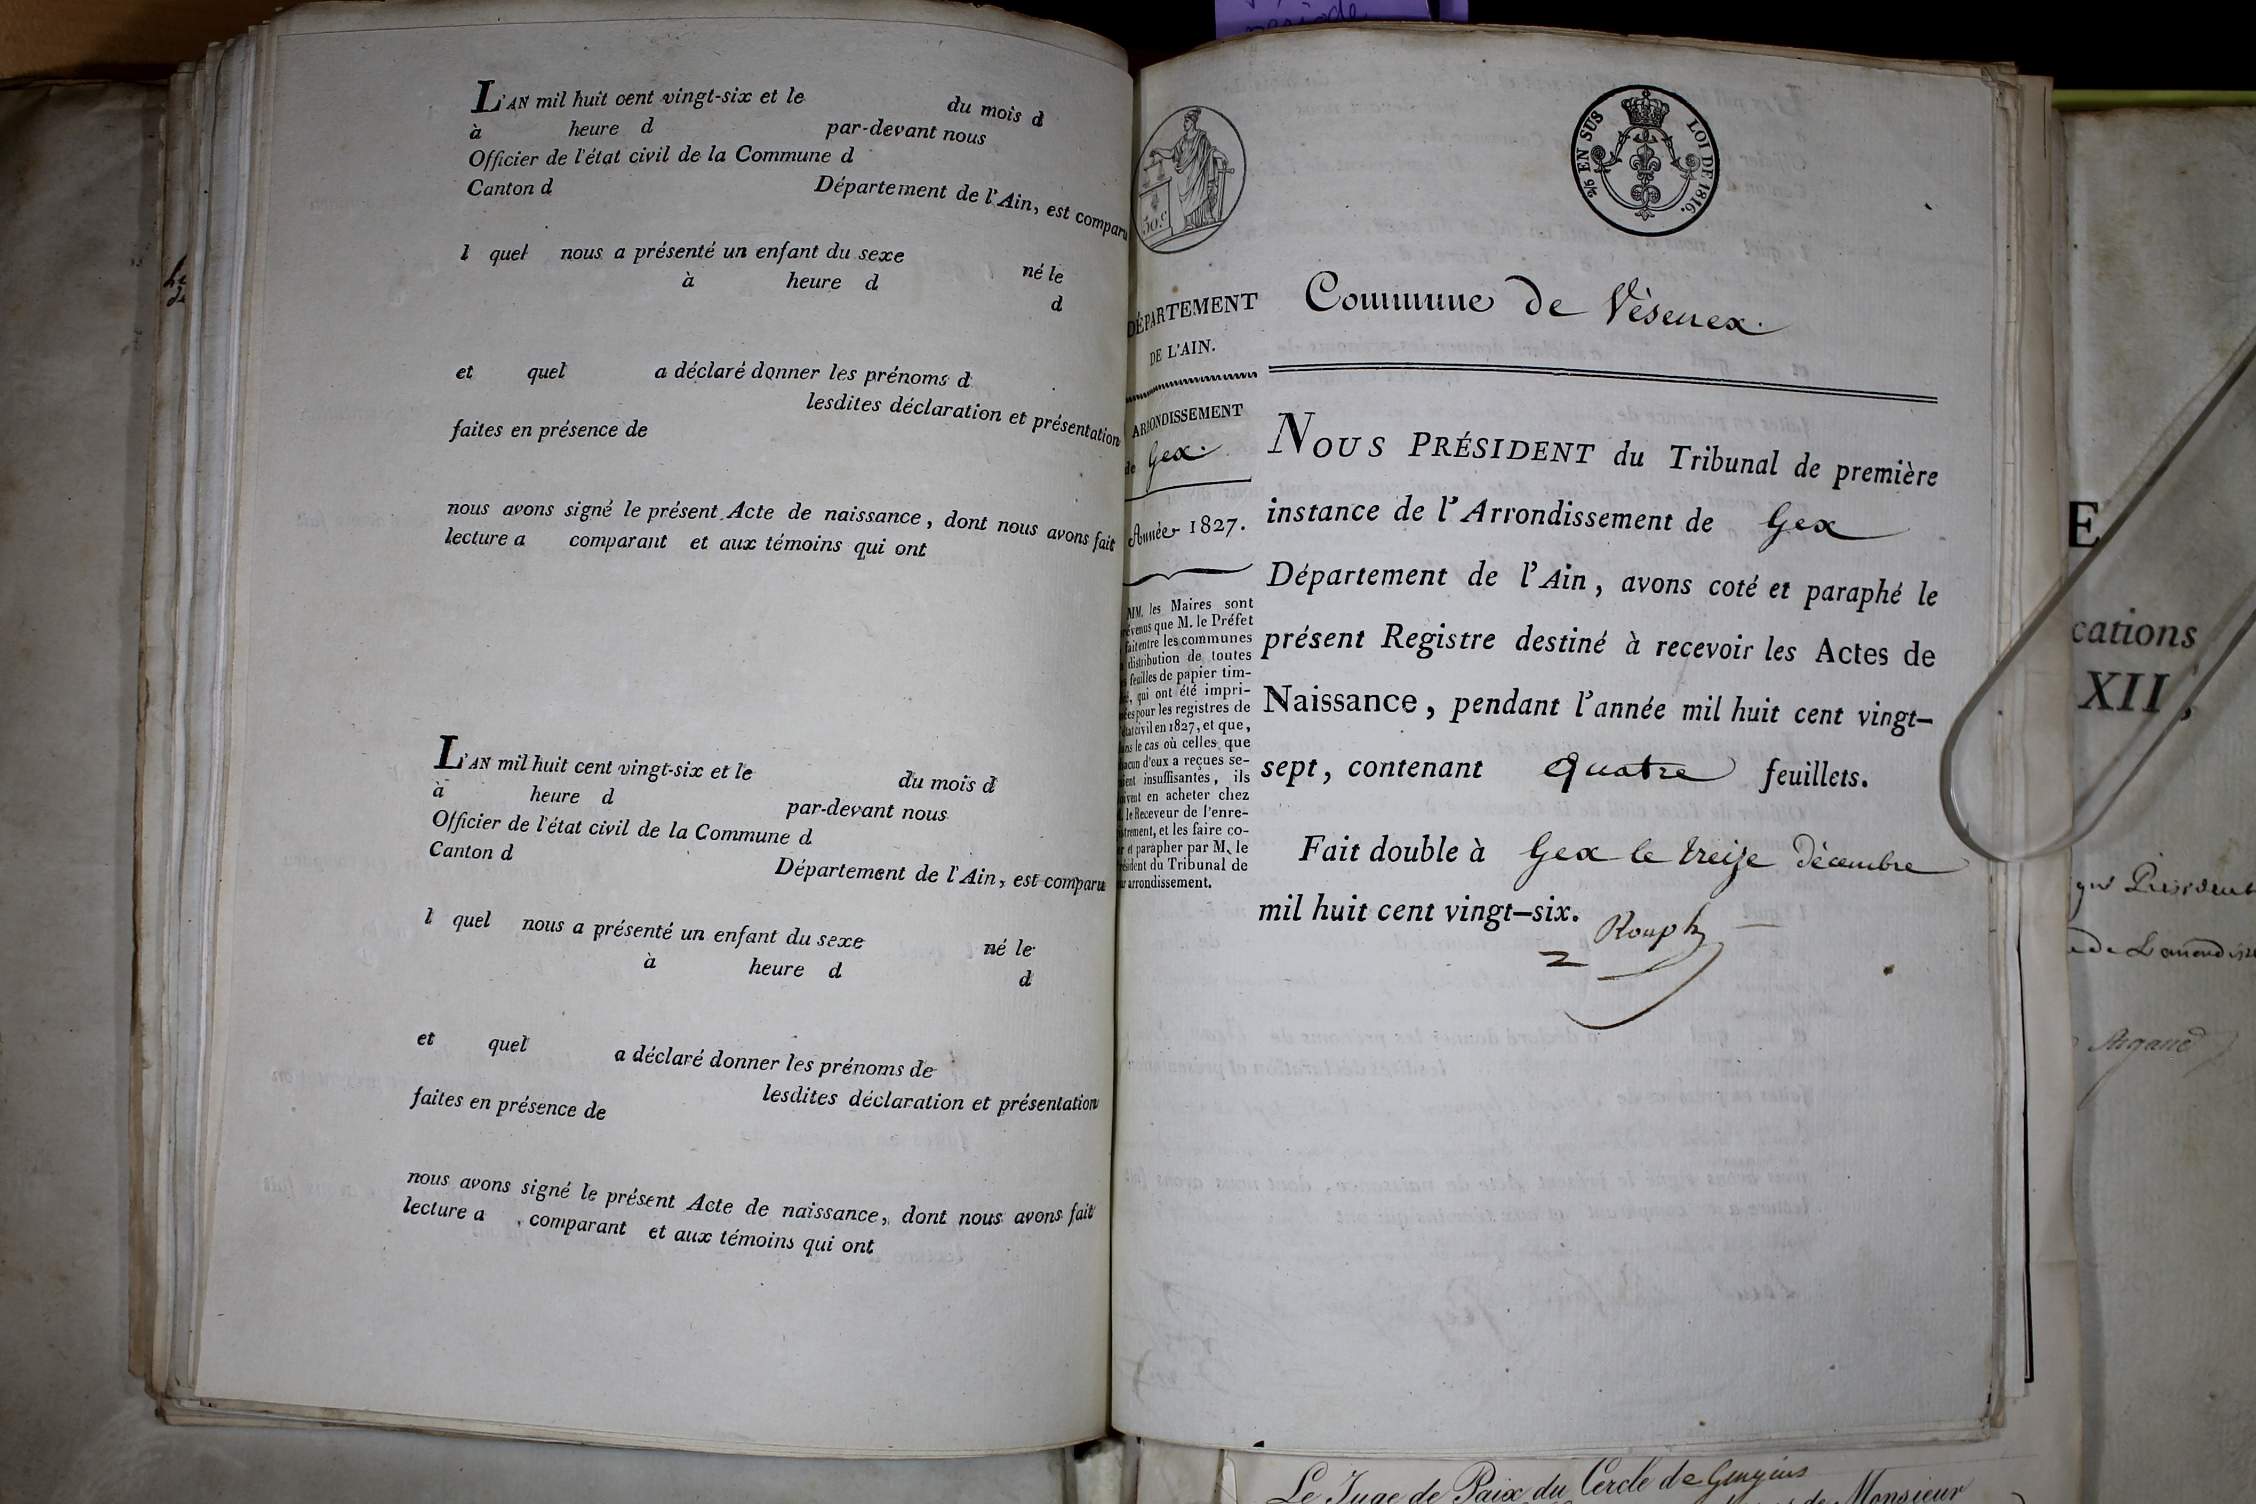 L'AN mil huit cent vingt-six et le du mois d
à heure d par-devant nous
Officier de l'état civil de la Commune d
Canton d Département de l'Ain, est comparu
l quel nous a présenté un enfant du sexe né le
à heure d d
et quel a déclaré donner les prénoms d
lesdites déclaration et présentation
faites en présence de
nous avons signé le présent Acte de naissance, dont nous avons fait
lecture a comparant et aux témoins qui ont
L'AN mil huit cent vingt-six et le du mois d
à heure d par-devant nous
Officier de l'état civil de la Commune d
Canton d Département de l'Ain, est comparu
l quel nous a présenté un enfant du sexe né le
à heure d d
et quel a déclaré donner les prénoms de
lesdites déclaration et présentation
faites en présence de
nous avons signé le présent Acte de naissance, dont nous avons fait
lecture a comparant et aux témoins qui ont
50.c
2/5 EN SUS LOI DE 1816.
DÉPARTEMENT
DE L'AIN.
ARRONDISSEMENT
de Gex.
Année 1827.
MM. les Maires sont
prévenus que M. le Préfet
fait entre les communes
distribution de toutes
feuilles de papier tim-
qui ont été impri-
pour les registres de
état civil en 1827, et que,
dans le cas où celles que
chacun d'eux a reçues se-
insuffisantes, ils
en acheter chez
le Receveur de l'enre-
gistrement, et les faire co-
et parapher par M. le
Président du Tribunal de
arrondissement.
Commune de Vèsenex.
NOUS PRÉSIDENT du Tribunal de première
instance de l'Arrondissement de Gex
Département de l'Ain, avons coté et paraphé le
présent Registre destiné à recevoir les Actes de
Naissance, pendant l'année mil huit cent vingt-
sept, contenant quatre feuillets.
Fait double à Gex le treize décembre
mil huit cent vingt-six.
Rouph
E
cations
XII,
Président
Argand
Le Juge de Paix du Cercle de Gingins
de Monsieur
période